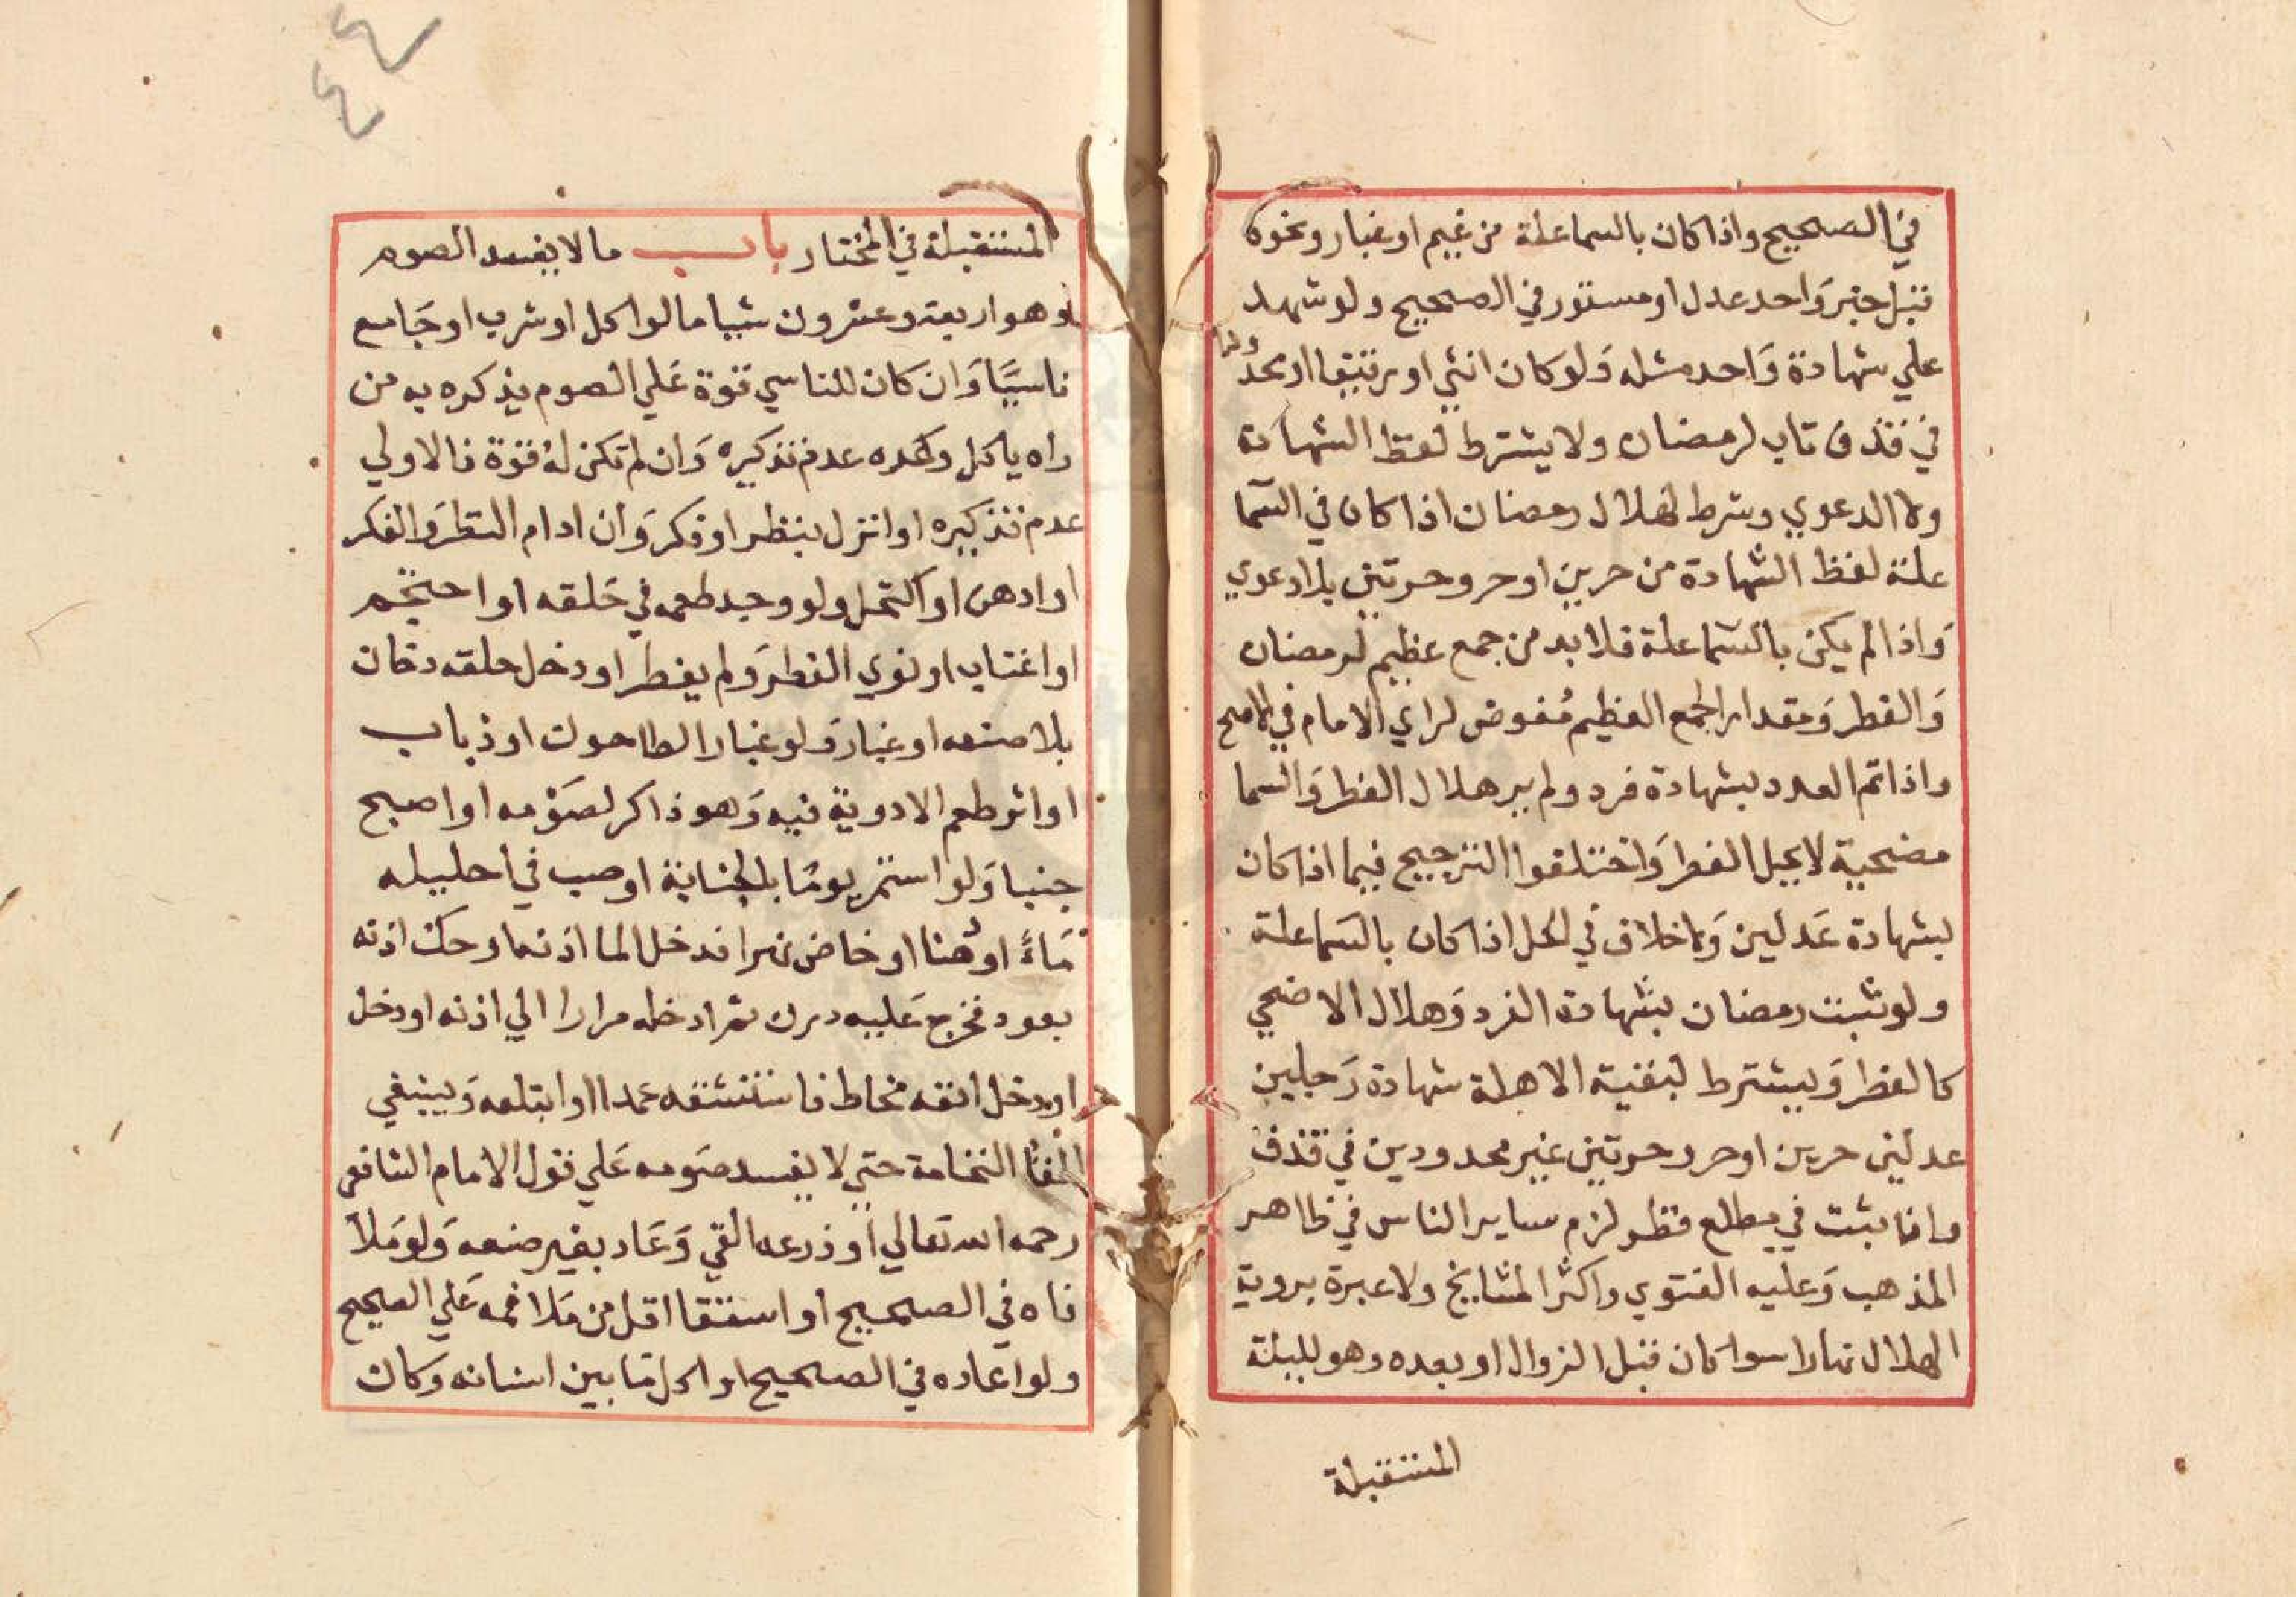 في الصحيح واذا كان بالسما علة من غيم او غبار ونحوه
قبل خبر واحد عدل او مستور في الصحيح ولو شهد
علي شهادة وَاحد مثله وَلو كان انثي او رقيقا او محدودا
في قذف تاب لرمضان ولا يشترط لفظ الشهادة
ولا الدعوي وشرط لهلال رمضان اذا كان في السما
علة لفظ الشهادة من حرين او حر وحرتين بلا دعوي
وَاذا لم يكن بالسما علة فلا بد من جمع عظيم لرمضان
وَالفطر وَمقدار الجمع العظيم مُفوض لراي الامام في الاصح
واذا تم العدد بشهادة فرد ولم ير هلال الفطر وَالسما
مضحية لا يحل الفطر وَاختلفوا الترجيح فيما اذا كان
بشهادة عَدلين وَلا خلاف في الحل اذا كان بالسما علة
ولو ثبت رمضان بشهادة الفرد وَهلال الاضحي
كالفطر وَيشترط لبقية الاهلة شهادة رَجلين
عدلين حرين او حر وحرتين غير محدودين في قذف
واذا ثبت في مطلع قطر لزم ساير الناس في ظاهر
المذهب وَعليه الفتوي واكثر المشايخ ولا عبرة بروية
الهلال نهارا سوا كان قبل الزوال او بعده وهو لليلة
المستقبلة
٤٤
المستقبلة في المختار باب ما لا يفسد الصوم
وهو اربعة وعشرون شييا ما لو اكل او شرب او جَامع
ناسيًا وَان كان للناسي قوة عَلي الصوم يذكره به من
راه ياكل وكره عدم تذكيره وَان لم تكن له قوة فالاولي
عدم تذكيره او انزل بنظر او فكر وَان ادام النظر وَالفكر
او ادهن او اكتحل ولو وجد طعمه في حَلقه او احتجم
او اغتاب او نوي الفطر وَلم يفطر او دخل حلقه دخان
بلا صنعه او غبار وَلو غبار الطاحون او ذباب
او اثر طعم الادوية فيه وَهو ذاكر لصَوْمه او اصبح
جنبا وَلو استمر يومًا بالجنابة او صب في احليله
مَاءً او دُهنا او خاض نهرا فدخل الما اذنه او حك اذنه
بعود فخرج عَليه درن ثم ادخله مرارا الي اذنه او دخل
او دخل انفه مخاط فاستنشقه عمدا او ابتلعه وَينبغي
القا النخامة حتي لا يفسد صَومه عَلي قول الامام الشافعي
رحمه الله تعالي او ذرعه القي وَعَاد بغير صنعه وَلو مَلا
فاه في الصحيح او استقا اقل من مَلا فمه عَلي الصحيح
ولو اعاده في الصحيح او اكل مَا بين اسنانه وكان